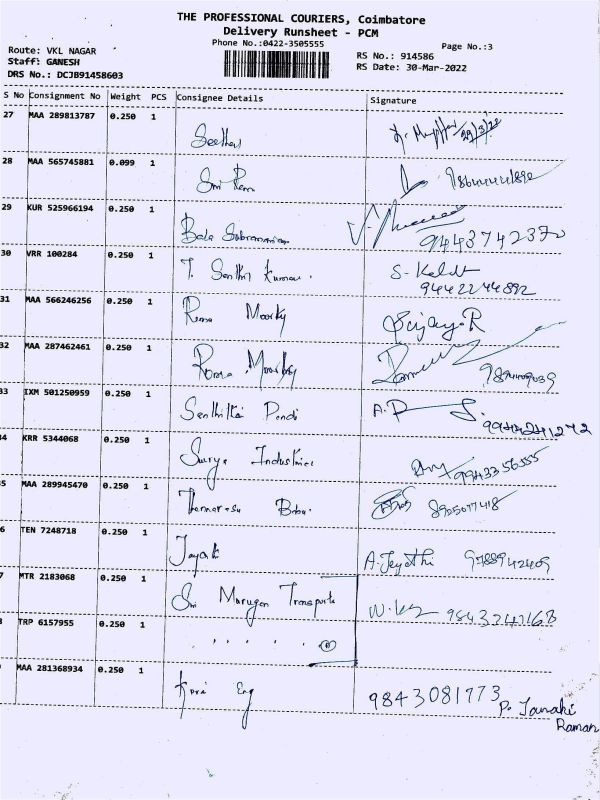 THE PROFESSIONAL COURIERS, Coimbatore
Delivery Runsheet - PCM
Phone No.:0422-3505555
Page No.:3
Route: VKL NAGAR
Staff: GANESH
DRS No.: DCJB91458603
RS No.: 914586
RS Date: 30-Mar-2022
S No Consignment No Weight PCS Consignee Details Signature
27 MAA 289813787 0.250 1
28 MAA 565745881 0.099 1 Sri Ram
29 KUR 525966194 0.250 1 Bala Subramaniam 9443742370
30 VRR 100284 0.250 1 T. Senthil Kumar. S-Kaldt
9442244892
31 MAA 566246256 0.250 1 Rama Moorthy Srijaya.R
32 MAA 287462461 0.250 1 Rama Moorthy
33 IXM 501250959 0.250 1 Senthil Pandi A.P 9944241272
4 KRR 5344068 0.250 1 Surya Industries 9943356555
5 MAA 289945470 0.250 1 Babu. 8905077418
6 TEN 7248718 0.250 1 Jayanthi A.Jeyathi 9788942409
7 MTR 2183068 0.250 1 Sri Murugan Transports 9843241163
TRP 6157955 0.250 1
MAA 281368934 0.250 1 Kovai Eng 9843081773 P. Janaki
Raman